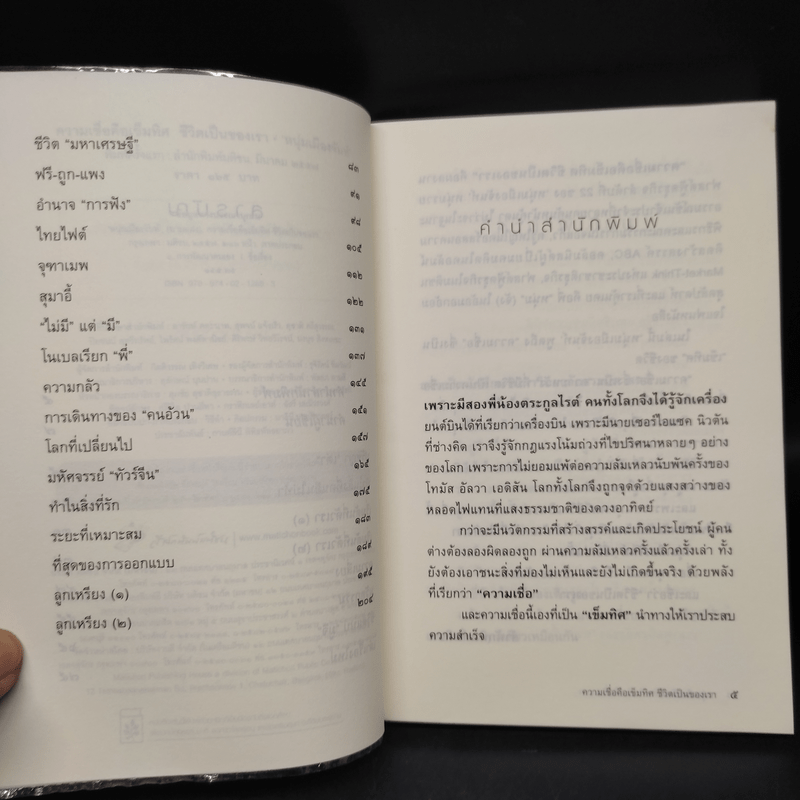 ชีวิต "มหาเศรษฐี" ๘๓
ฟรี-ถูก-แพง ๙๑
อำนาจ "การฟัง" ๙๘
ไทยไฟต์ ๑๐๕
จุฑาเมพ ๑๑๒
สุมาอี้ ๑๒๒
"ไม่มี" แต่ "มี" ๑๓๑
โนเบลเรียก "พี่" ๑๓๗
ความกลัว ๑๔๕
การเดินทางของ "คนอ้วน" ๑๕๑
โลกที่เปลี่ยนไป ๑๕๗
มหัศจรรย์ "ทัวร์จีน" ๑๖๕
ทำในสิ่งที่รัก ๑๗๕
ระยะที่เหมาะสม ๑๘๓
ที่สุดของการออกแบบ ๑๘๙
ลูกเหรียง (๑) ๑๙๕
ลูกเหรียง (๒) ๒๐๔
คำนำสำนักพิมพ์
เพราะมีสองพี่น้องตระกูลไรต์ คนทั้งโลกจึงได้รู้จักเครื่อง
ยนต์บินได้ที่เรียกว่าเครื่องบิน เพราะมีนายเซอร์ไอแซค นิวตัน
ที่ช่างคิด เราจึงรู้จักกฎแรงโน้มถ่วงที่ไขปริศนาหลายๆ อย่าง
ของโลก เพราะการไม่ยอมแพ้ต่อความล้มเหลวนับพันครั้งของ
โทมัส อัลวา เอดิสัน โลกทั้งโลกจึงถูกจุดด้วยแสงสว่างของ
หลอดไฟแทนที่แสงธรรมชาติของดวงอาทิตย์
กว่าจะมีนวัตกรรมที่สร้างสรรค์และเกิดประโยชน์ ผู้คน
ต่างต้องลองผิดลองถูก ผ่านความล้มเหลวครั้งแล้วครั้งเล่า ทั้ง
ยังต้องเอาชนะสิ่งที่มองไม่เห็นและยังไม่เกิดขึ้นจริง ด้วยพลัง
ที่เรียกว่า "ความเชื่อ"
และความเชื่อนี้เองที่เป็น "เข็มทิศ" นำทางให้เราประสบ
ความสำเร็จ
ความเชื่อคือเข็มทิศ ชีวิตเป็นของเรา ๕